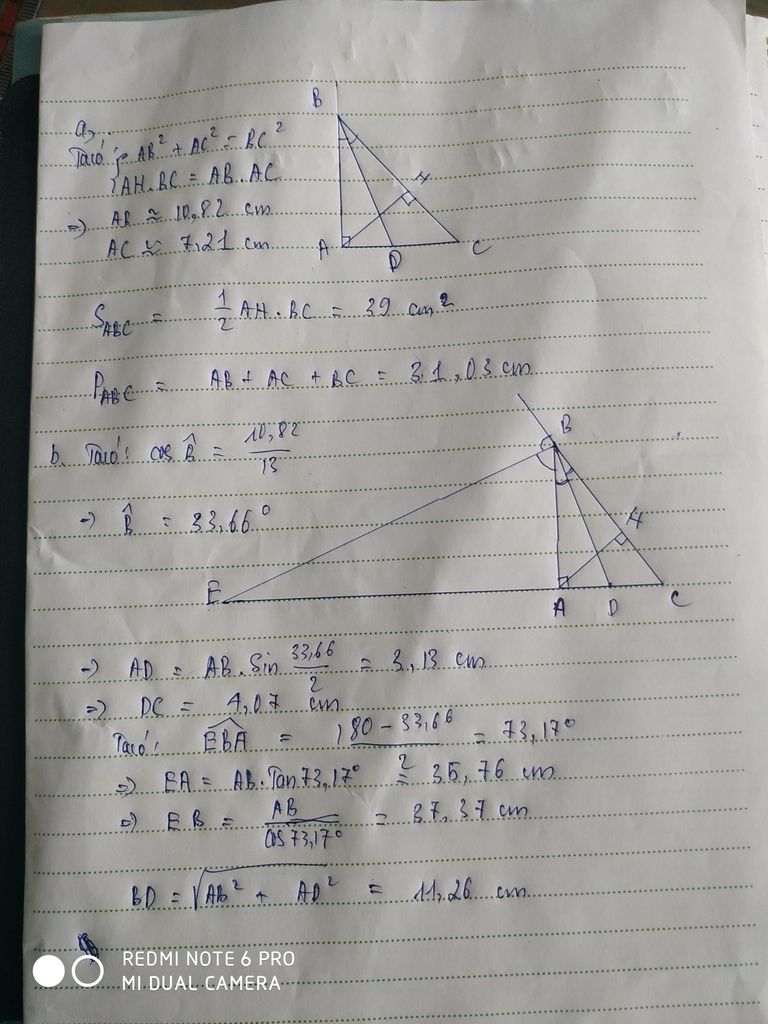 a,
Ta có { AB² + AC² = BC²
AH.BC = AB.AC
=> AB ≈ 10,82 cm
AC ≈ 7,21 cm
B
H
A
D
C
S_ABC = 1/2 AH.BC = 39 cm²
P_ABC = AB + AC + BC = 31,03 cm
b. Ta có: cos B̂ = 10,82/13
=> B̂ = 33,66°
B
H
E
A
D
C
=> AD = AB.Sin 33,66/2 = 3,13 cm
=> DC = 4,07 cm
Ta có: EBA = 180 - 33,66/2 = 73,17°
=> EA = AB.Tan 73,17° = 35,76 cm
=> EB = AB/cos 73,17° = 37,37 cm
BD = √AB² + AD² = 11,26 cm
REDMI NOTE 6 PRO
MI DUAL CAMERA